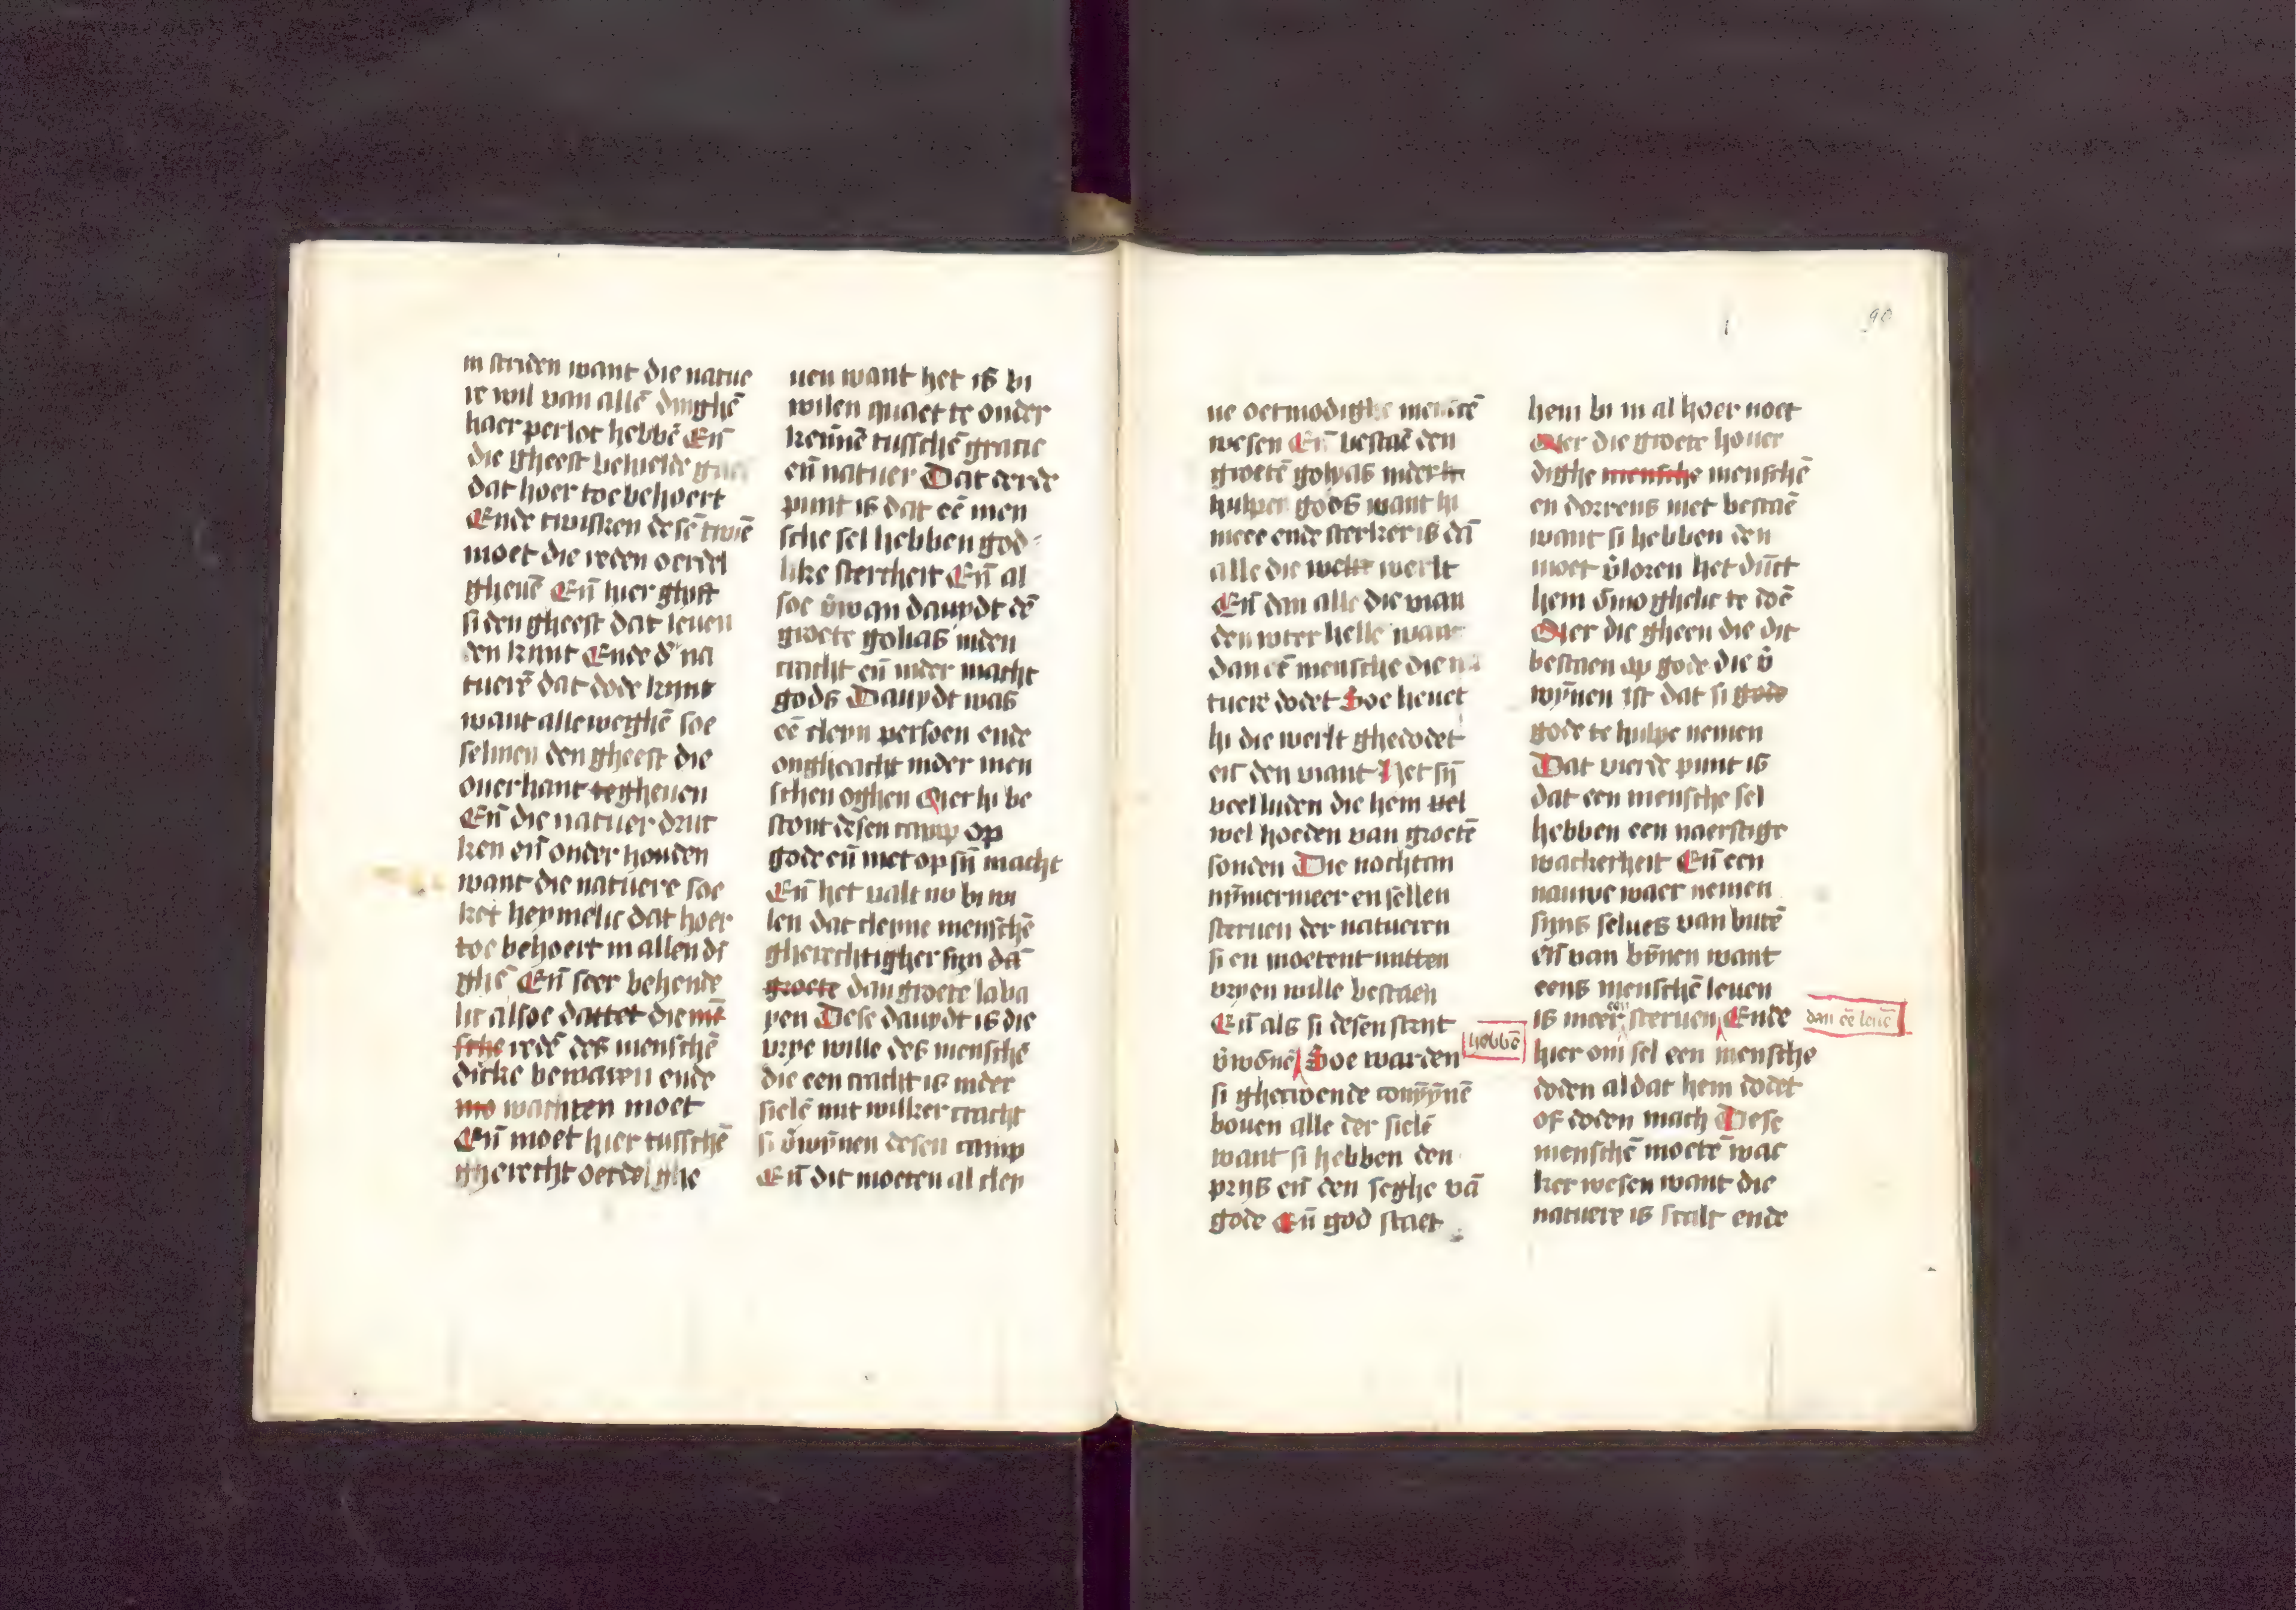 in striden want die natue
re wil van allē dinghē
haer perloc hebbē Eñ
die gheest behielde
dat hoer toe behoert
Ende twisken desē twiē
moet die reden oerdel
gheuē Eñ hier ghift
si den gheest dat leuen
den kynt Ende d' na
tuerē dat dode kynt
want alleweghē soe
selmen den gheest die
ouerhant tegheuen
Eñ die natuer druc
ken eñ onder houden
want die natuere soe
ket heymelic dat hoer
toe behoert in allen di
ghē Eñ seer behende
lic alsoe dattet die mē
sche redē des menschē
dicke bewaren ende
mo wachten moet
Eñ moet hier tusschē
gherecht oerdel ghe
uen want het is bi
wilen quaet te onder
kennē tusschē gracie
eñ natuer Dat derde
punt is dat eē men
sche sel hebben god
like stercheit Eñ al
soe v̄wan dauydt dē
groete golias inden
cracht eñ inder macht
gods Dauydt was
eē cleyn persoen ende
ongheacht inder men
schen oghen Mer hi be
stont desen camp op
gode eñ niet op sȳ macht
Eñ het valt no bi wi
len dat cleyne menschē
gherechtigher siin dā
groete dan groete laba
yen Dese dauydt is die
vrye wille des menschē
die een cracht is inder
sielē mit wilker cracht
si v̄wȳnen desen camp
Eñ dit moeten al cley
ne oetmodighe menscē
wesen Eñ bestaē den
groetē golyas inder h
hulpen gods want hi
meere ende sterker is dā
alle die welt werlt
Eñ dan alle die vian
den vter helle want
dan eē mensche die na
tuere dodet Soe heuet
hi die werlt ghedodet
eñ den viant Het sȳ
veel luden die hem vel
wel hoeden van groetē
sonden Die nochtan
nȳmermeer en sellen
steruen der natueren
si en moetent mitten
vryen wille bestaen
Eñ als si desen strit
v̄wōnē Soe warden
hebbē
si ghecroende conȳȳnē
bouen alle der sielē
want si hebben den
prijs eñ den seghe vā
gode Eñ god staet
90
hem bi in al hoer noet
Mer die groete houer
dighe mensche menschē
en dorrens niet bestaē
want si hebben den
moet v̄loren het dūct
hem ōmoghelic te doē
Mer die gheen die dit
bestaen op gode die v̄
wȳnen ist dat si gode
gode te hulpe nemen
Dat vierde punt is
dat een mensche sel
hebben een naerstige
wackerheit Eñ een
nauwe waer nemen
sijns selues van butē
eñ van bȳnen want
eens menschē leuen
is meer een steruen Ende
dan eē leuē
hier om sel een mensche
doden al dat hem dodet
of doden mach Dese
menschē moetē wac
ker wesen want die
natuere is scalc ende